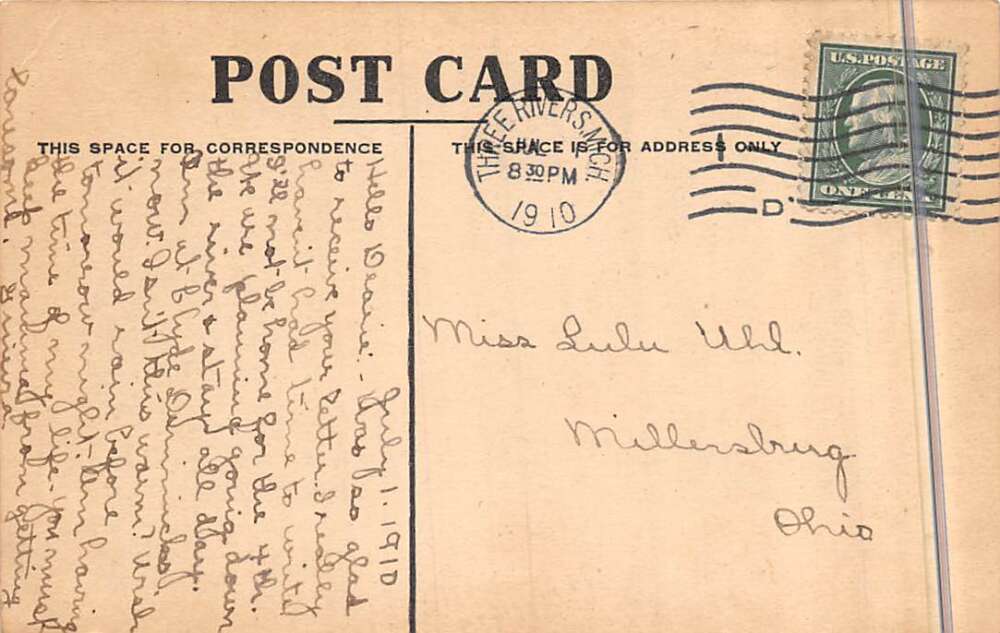 POST CARD
THIS SPACE FOR CORRESPONDENCE
THIS SPACE IS FOR ADDRESS ONLY
THREE RIVERS, MICH.
JUL 1
8 30 PM
1910
D
U.S. POSTAGE
ONE CENT
Miss Lulu Uhl.
Millersbrug
Ohio
July 1. 1910
Hello Dearie:- Was so glad
to receive your letter. I really
havent had time to write
I'll not be home for the 4th.
We are planning going down
the river & stay all day.
Am at Clyde
now. Isn't this warm? Wish
it would rain before
tomorrow night. Am having
the time of my life. You must
keep mad from getting